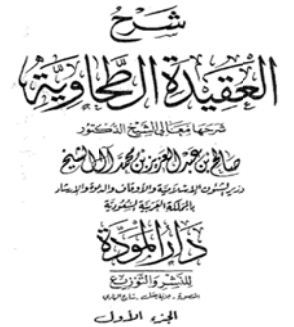 شرح
العقيدة الطحاوية
شرحها معالي الشيخ الدكتور
صالح بن عبد العزيز بن محمد آل الشيخ
وزير الشئون الإسلامية والأوقاف والدعوة والإرشاد
بالمملكة العربية السعودية
دار المودة
للنشر والتوزيع
المنصورة - شارع الهادي
الجزء الأول